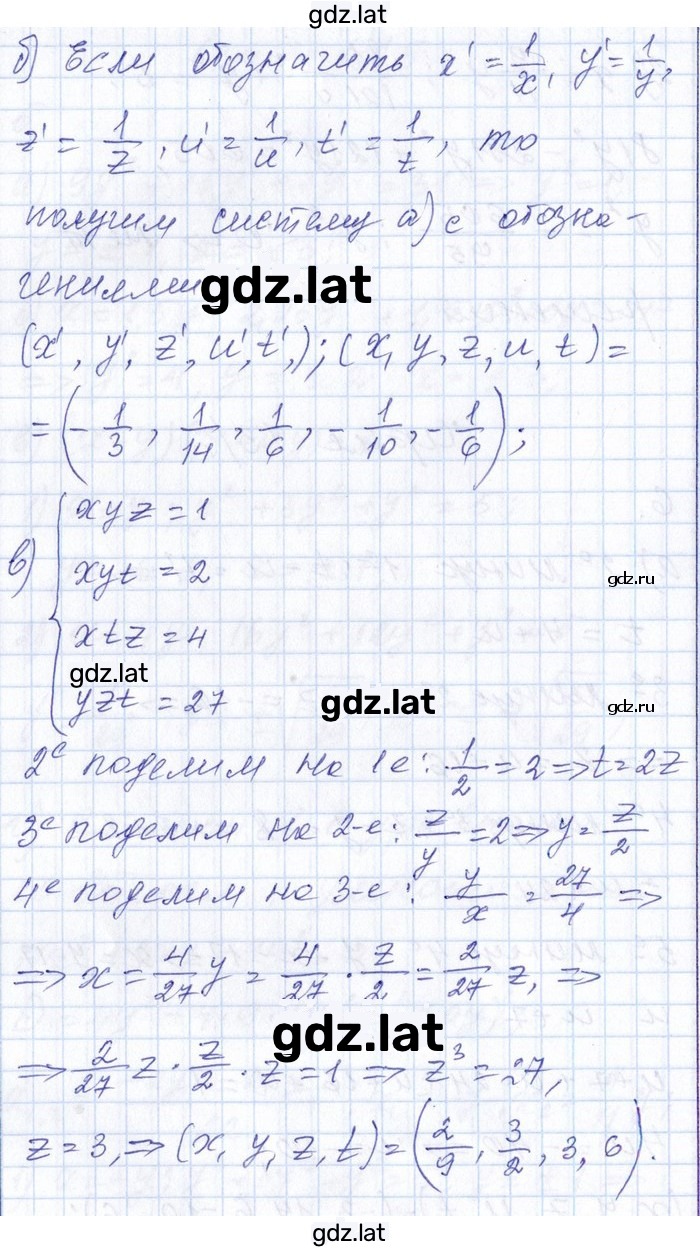 gdz.lat
б) Если обозначить x' = 1/x, y' = 1/y,
z' = 1/z, u' = 1/u, t' = 1/t, то
получим систему а) с обозна-
чениями
gdz.lat
(x', y', z', u', t',); (x, y, z, u, t) =
= (-1/3, 1/14, 1/6, -1/10, -1/6);
в) { xyz = 1
xyt = 2
gdz.ru
xtz = 4
gdz.lat
yzt = 27
gdz.lat
gdz.ru
2е поделим на 1е: 1/2 = 2 => t = 2z
3е поделим на 2-е: z/y = 2 => y = z/2
4е поделим на 3-е: y/x = 27/4 =>
=> x = 4/27 y = 4/27 · z/2 = 2/27 z, =>
gdz.lat
=> 2/27 z · z/2 · z = 1 => z³ = 27,
z = 3, => (x, y, z, t) = (2/9, 3/2, 3, 6).
gdz.lat